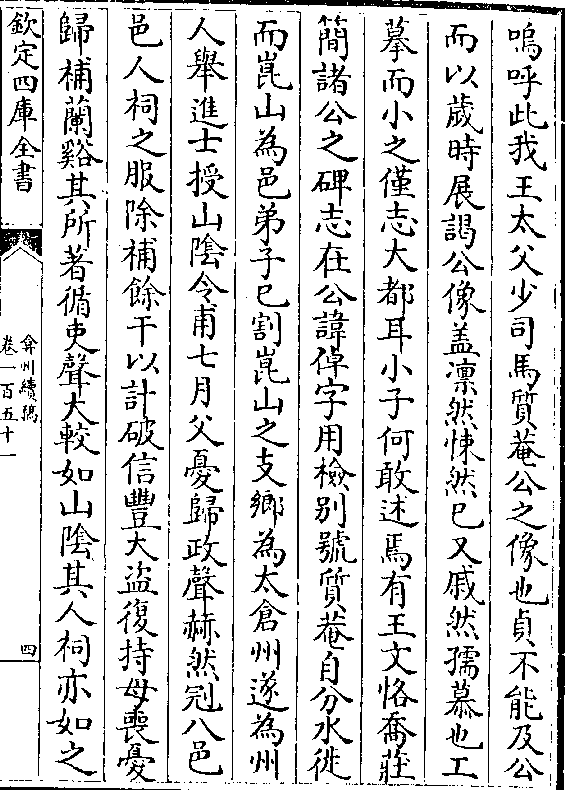 嗚呼此我王太父少司馬質菴公之像也貞不能及公
而以歲時展謁公像盖凛然悚然已又戚然孺慕也工
摹而小之僅志大都耳小子何敢述焉有王文恪喬莊
簡諸公之碑志在公諱倬字用檢别號質菴自分水徙
而崑山為邑弟子已割崑山之支鄉為太倉州遂為州
人舉進士授山隂令甫七月父憂歸政聲赫然冠八邑
邑人祠之服除補餘干以計破信豐大盜復持母喪憂
歸補蘭谿其所著循吏聲大較如山隂其人祠亦如之
欽定四庫全書
弇州續稿
卷一百五十一
四